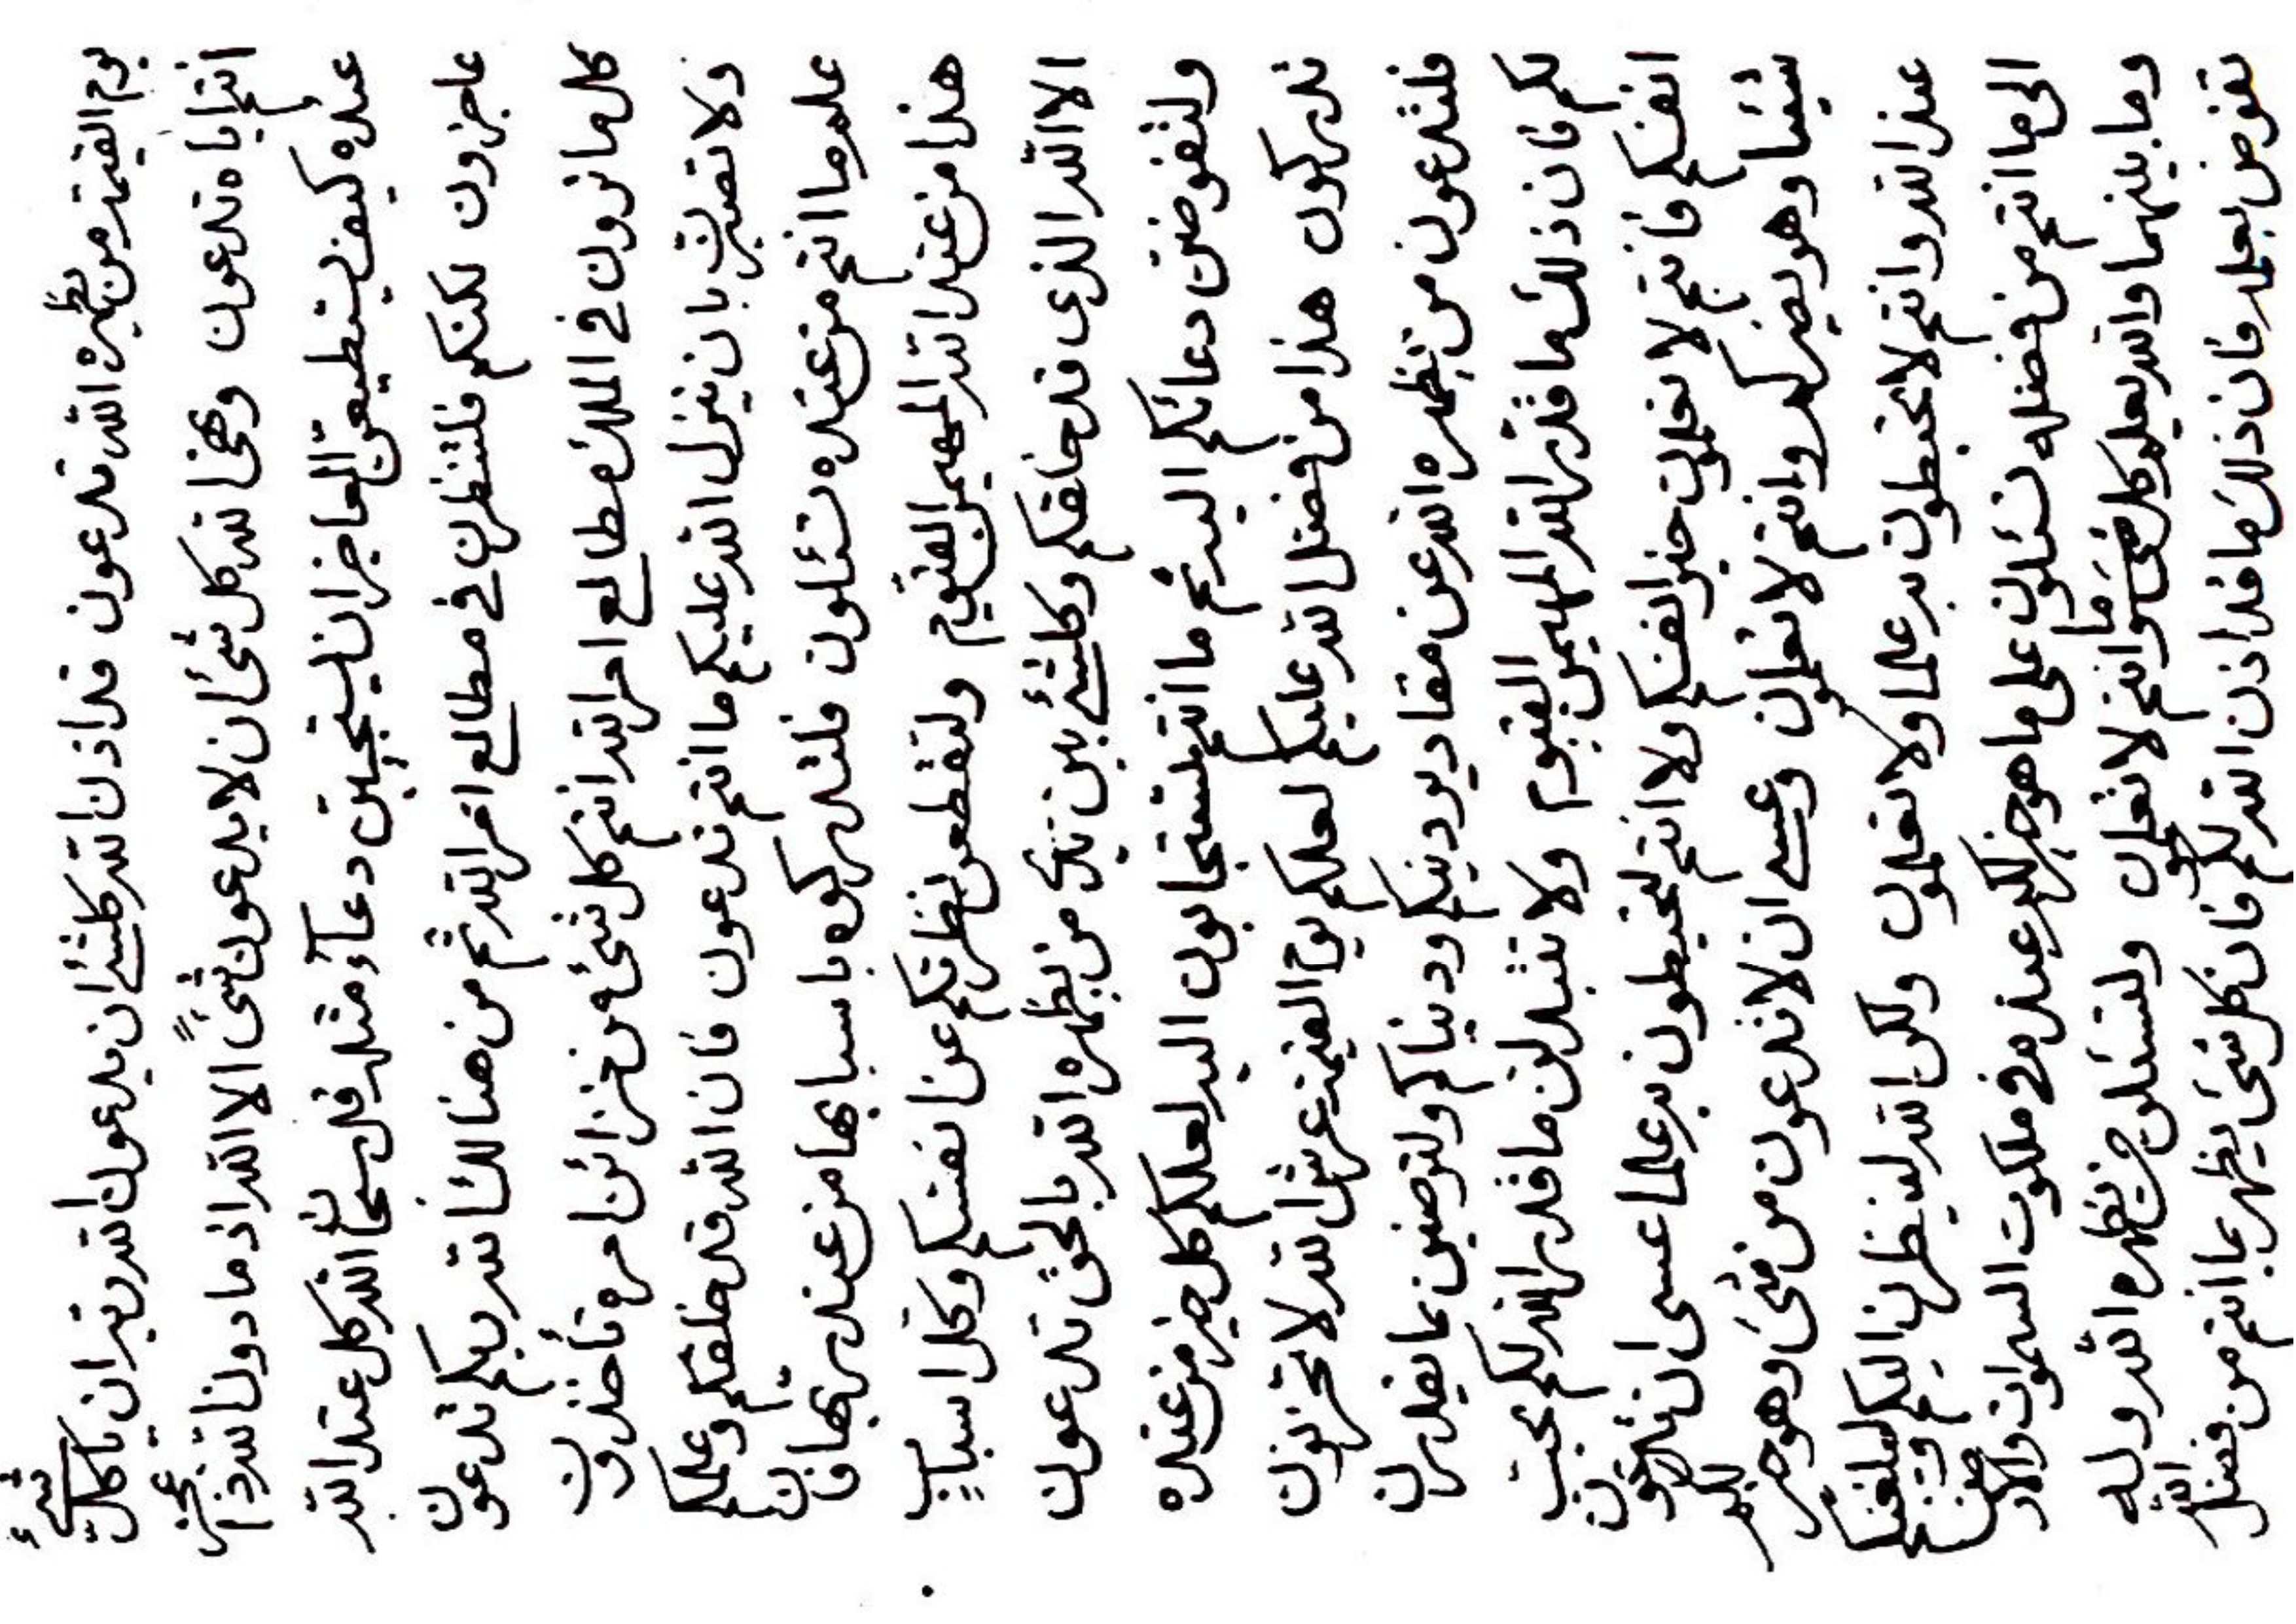 يوم القيمة من يظهره الله تدعون قد اذن الله كلشئ ان يدعون الله ربه ان يا كل شئ
انتم اياه تدعون الله كل شئ ان لا يدعون شئ الا الله اذ ما دون الله عجز
عبده كيف يستطيعن العاجز ان يستجيبن دعاء مثله قل سبحان الله كل عند الله
عاجزون لكنكم فلتنظرن في مطالع امر الله ثم من هنالك الله ربكم تدعون
كل ما ترون في الملك مطالع امر الله انتم كل شئ من خزائن امره تأخذون
ولا تصبرن بان ينزل الله عليكم ما انتم تدعون فان الله قد خلقكم وعلمكم
علم ما انتم من عنده تسئلون فلتدركوه باسبابها من عند ربها فان
هذا من عند الله المهيمن القيوم ولتقطعن نظرتكم عن انفسكم وكل اسباب
الا الله الذى قد خلقكم وكلشئ بين يدى من يظهره الله بالحق تدعون
ولتفوضن دعائكم اليه ثم ما انتم لتستجابون اليه لعلكم كل خير من عنده
تدركون هذا من فضل الله عليكم لعلكم يوم القيمة عرش الله لا تحزنون
فلتدعون من يظهره الله عن مقادير دينكم ودنياكم ولترضين بما يقدرن
لكم فان ذلك ما قدر الله المهيمن القيوم ولا تتبدلن ما قدر الله لكم بحب
انفسكم فانتم لا تعلمون خير انفسكم ولا انتم لتحيطون به علما عسى ان تدعون
شيئا وهو يضر لكم وانتم لا تعلمون وعسى ان لا تدعون من شئ وهو خير لكم
عند الله وانتم لا تحيطون به علما ولا تعلمون ولكن الله لينظرن اليكم
الى ما انتم من فضله تسئلون على ما هو خير لكم عنده في ملكوت السموات والارض
وما بينهما والله يعلم كل شئ وانتم لا تعلمون ولتسئلون من يظهره الله وله
تفوض بعلمه فان ذلك ما قد اذن الله لكم فان كل شئ يظهر بما انتم من فضل الله